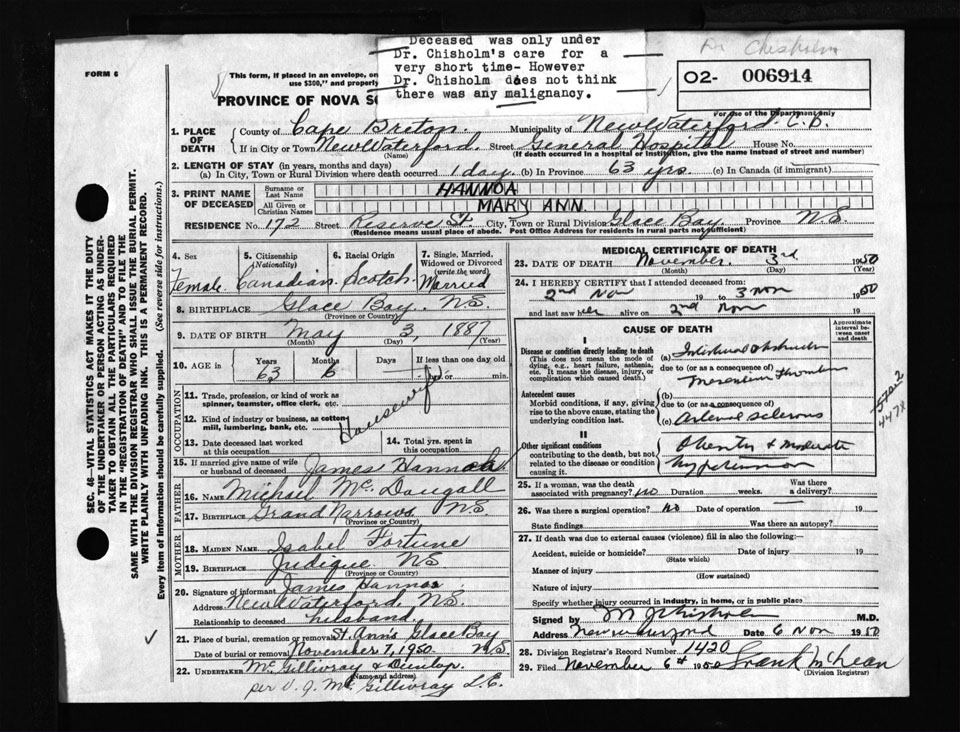 Dr Chisholm
Deceased was only under
Dr. Chisholm's care for a
very short time- However
Dr. Chisholm does not think
there was any malignancy.
FORM 6
This form, if placed in an envelope, on
use $300," and properly
O2- 006914
For use of the Department only
PROVINCE OF NOVA SC
1. PLACE OF DEATH County of Cape Breton. Municipality of New Waterford. C.B.
If in City or Town New Waterford. Street General Hospital House No.
(Name) (If death occurred in a hospital or institution, give the name instead of street and number)
2. LENGTH OF STAY (in years, months and days)
(a) In City, Town or Rural Division where death occurred 1 day. (b) In Province 63 yrs. (c) In Canada (if immigrant)
3. PRINT NAME OF DECEASED Surname or Last Name HANNOA
All Given or Christian Names MARY ANN.
RESIDENCE No. 172 Street Reserve St. City, Town or Rural Division Glace Bay. Province N.S.
(Residence means usual place of abode. Post Office Address for residents in rural parts not sufficient)
SEC. 46—VITAL STATISTICS ACT MAKES IT THE DUTY
OF THE UNDERTAKER OR PERSON ACTING AS UNDER-
TAKER TO OBTAIN ALL THE PARTICULARS REQUIRED
IN THE "REGISTRATION OF DEATH" AND TO FILE THE
SAME WITH THE DIVISION REGISTRAR WHO SHALL ISSUE THE BURIAL PERMIT.
WRITE PLAINLY WITH UNFADING INK. THIS IS A PERMANENT RECORD.
Every item of information should be carefully supplied. (See reverse side for instructions.)
4. Sex Female
5. Citizenship (Nationality) Canadian
6. Racial Origin Scotch
7. Single, Married, Widowed or Divorced (write the word) Married
8. BIRTHPLACE Glace Bay. NS.
(Province or Country)
9. DATE OF BIRTH May 3, 1887
(Month) (Day) (Year)
10. AGE in Years Months Days If less than one day old
63 6 hrs. or min.
OCCUPATION
11. Trade, profession, or kind of work as spinner, teamster, office clerk, etc. Housewife
12. Kind of industry or business, as cotton mill, lumbering, bank, etc.
13. Date deceased last worked at this occupation
14. Total yrs. spent in this occupation
15. If married give name of wife or husband of deceased James Hannoah
FATHER
16. Name Michael Mc. Dougall
17. BIRTHPLACE Grand Narrows NS.
(Province or Country)
MOTHER
18. MAIDEN NAME Isabel Fortune
19. BIRTHPLACE Judique NS
(Province or Country)
20. Signature of informant James Hannoa
Address New Waterford. NS.
Relationship to deceased husband.
21. Place of burial, cremation or removal St. Ann's Glace Bay
Date of burial or removal November 7, 1950. N.S.
22. UNDERTAKER Mc Gillivray & Dunlop.
(Name and address)
per V. J. Mc Gillivray L.E.
MEDICAL CERTIFICATE OF DEATH
23. DATE OF DEATH November. 3rd 1950
(Month) (Day) (Year)
24. I HEREBY CERTIFY that I attended deceased from:
2nd Nov 19 to 3 Nov 1950
and last saw her alive on 2nd Nov 19
CAUSE OF DEATH
Approximate interval between onset and death
I
Disease or condition directly leading to death
(This does not mean the mode of dying, e.g., heart failure, asthenia, etc. It means the disease, injury, or complication which caused death.)
(a) Intestinal obstruction
due to (or as a consequence of)
Mesenteric Thrombosis
Antecedent causes
Morbid conditions, if any, giving rise to the above cause, stating the underlying condition last.
(b)
due to (or as a consequence of)
(c) Arterial sclerosis
5702
447X
II
Other significant conditions
contributing to the death, but not related to the disease or condition causing it.
Obesity & moderate
hypertension
25. If a woman, was the death associated with pregnancy? no Duration weeks. Was there a delivery?
26. Was there a surgical operation? No Date of operation 19
State findings Was there an autopsy?
27. If death was due to external causes (violence) fill in also the following:—
Accident, suicide or homicide? Date of injury 19
(State which)
Manner of injury
(How sustained)
Nature of injury
Specify whether injury occurred in industry, in home, or in public place
Signed by M J Chisholm M.D.
Address New Waterford Date 6 Nov 1950
28. Division Registrar's Record Number 1420
29. Filed November 6th 1950 Frank McLean
(Division Registrar)